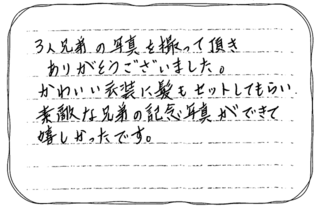 3人兄弟の写真を撮って頂き
ありがとうございました。
かわいい衣装に髪もセットしてもらい
素敵な兄弟の記念写真ができて
嬉しかったです。